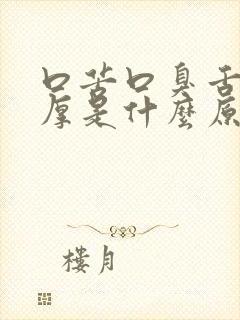 口苦口臭舌
厚是什麼原
樓月